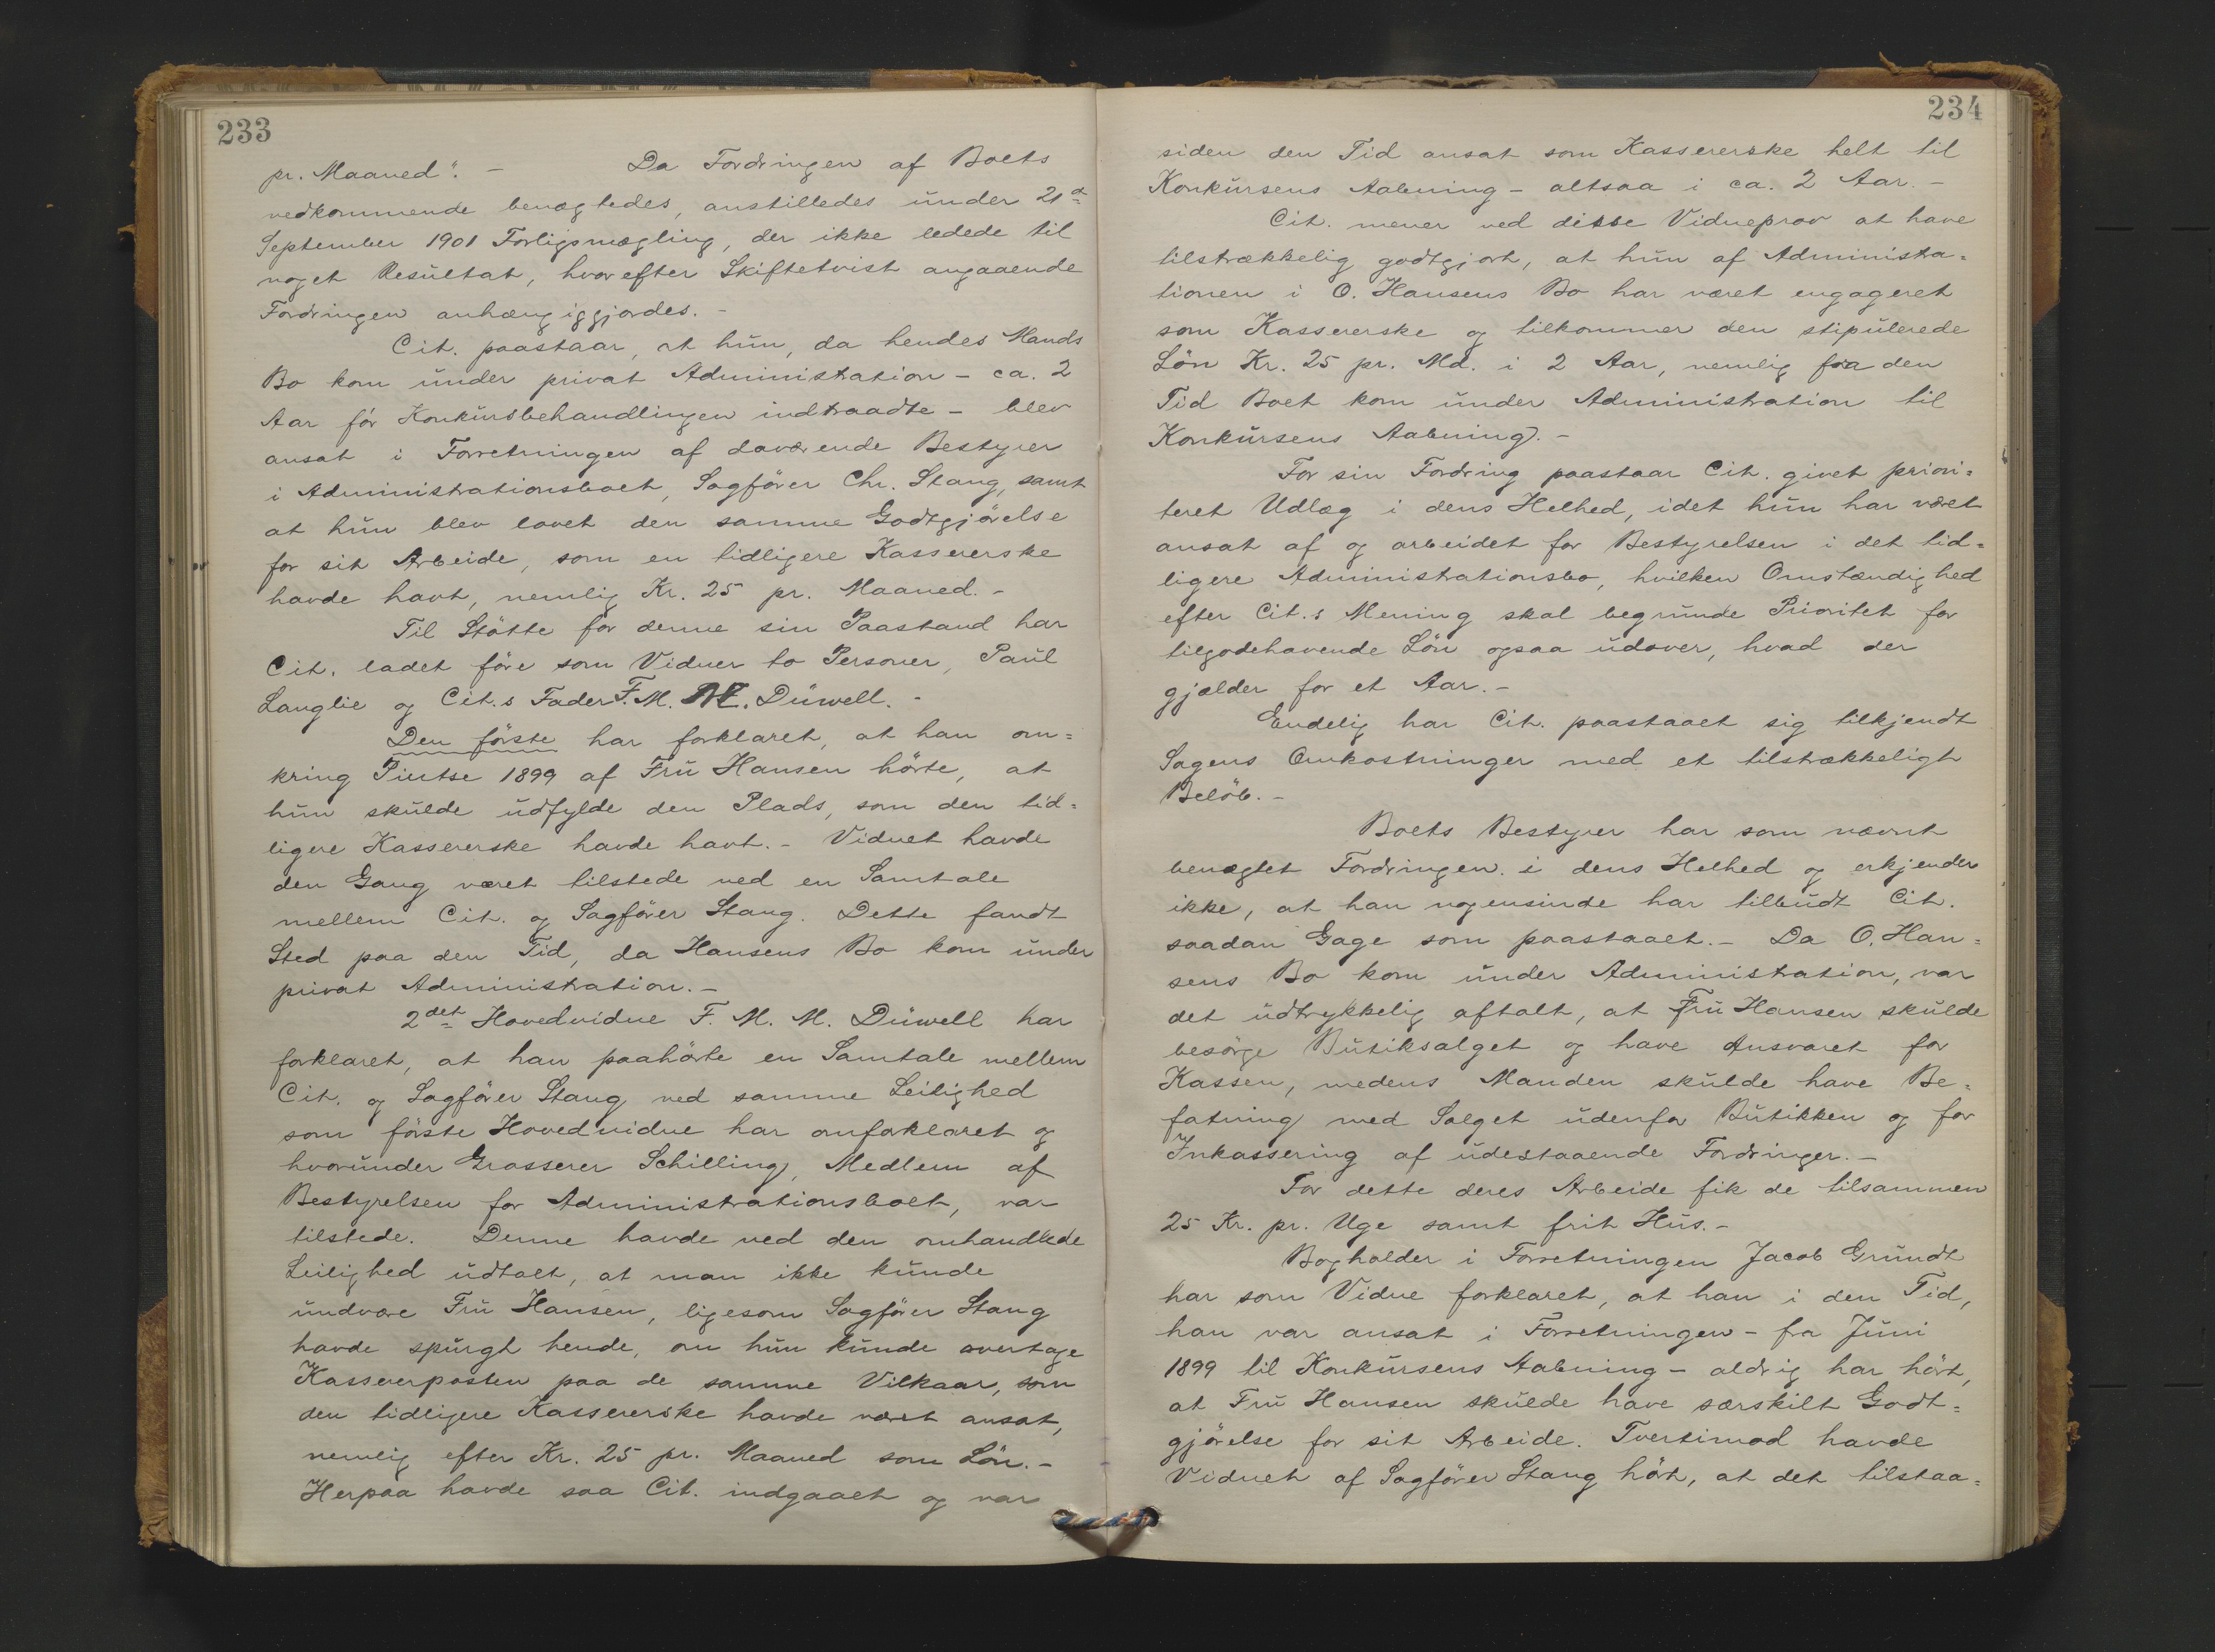 233
pr. Maaned". - Da Fordringen af Boets
vedkommende benægtedes, anstilledes under 21de
September 1901 Forligsmægling, der ikke ledede til
noget Resultat, hvorefter Skiftetvist angaaende
Fordringen anhængiggjordes. -
Cit. paastaar, at hun, da hendes Mands
Bo kom under privat Administration - ca. 2
Aar før Konkursbehandlingen indtraadte - blev
ansat i Forretningen af daværende Bestyrer
i Administrationsboet, Sagförer Chr. Stang, samt
at hun blev lovet den samme Godtgjörelse
for sit Arbeide, som en tidligere Kassererske
havde havt, nemlig Kr. 25 pr. Maaned. -
Til Stötte for denne sin Paastand har
Cit. ladet före som Vidner to Personer, Paul
Langlie og Cit.s Fader F. M. M. Düwell. -
Den förste har forklaret, at han om=
kring Pintse 1899 af Fru Hansen hörte, at
hun skulde udfylde den Plads, som den tid=
ligere Kassererske havde havt. - Vidnet havde
den Gang været tilstede ved en Samtale
mellem Cit. og Sagförer Stang. Dette fandt
Sted paa den Tid, da Hansens Bo kom under
privat Administration. -
2det Hovedvidne F. M. M. Düwell har
forklaret, at han paahörte en Samtale mellem
Cit. og Sagförer Stang ved samme Leilighed
som förste Hovedvidne har omforklaret og
hvorunder Grosserer Schilling, Medlem af
Bestyrelsen for Administrationsboet, var
tilstede. Denne havde ved den omhandlede
Leilighed udtalt, at man ikke kunde
undvære Fru Hansen, ligesom Sagförer Stang
havde spurgt hende, om hun kunde overtage
Kassererposten paa de samme Vilkaar, som
den tidligere Kassererske havde været ansat,
nemlig efter Kr. 25 pr. Maaned som Lön. -
Herpaa havde saa Cit. indgaaet og var
234
siden den Tid ansat som Kassererske helt til
Konkursens Aabning - altsaa i ca. 2 Aar. -
Cit. mener ved disse Vidneprov at have
tilstrækkelig godtgjort, at hun af Administra=
tionen i O. Hansens Bo har været engageret
som Kassererske og tilkommer den stipulerede
Lön Kr. 25 pr. Md. i 2 Aar, nemlig fra den
Tid Boet kom under Administration til
Konkursens Aabning. -
For sin Fordring paastaar Cit. givet priori=
teret Udlæg i dens Helhed, idet hun har været
ansat af og arbeidet for Bestyrelsen i det tid=
ligere Administrationsbo, hvilken Omstændighed
efter Cit.s Mening skal begrunde Prioritet for
tilgodehavende Lön ogsaa udover, hvad der
gjælder for et Aar. -
Endelig har Cit. paastaaet sig tilkjendt
Sagens Omkostninger med et tilstrækkeligt
Belöb. -
Boets Bestyrer har som nævnt
benægtet Fordringen i dens Helhed og erkjender
ikke, at han nogensinde har tilbudt Cit.
saadan Gage som paastaaet. - Da O. Han=
sens Bo kom under Administration, var
det udtrykkelig aftalt, at Fru Hansen skulde
besörge Butiksalget og have Ansvaret for
Kassen, medens Manden skulde have Be=
fatning med Salget udenfor Butikken og for
Inkassering af udestaaende Fordringer. -
For dette deres Arbeide fik de tilsammen
25 Kr. pr. Uge samt frit Hus. -
Bogholder i Forretningen Jacob Grundt
har som Vidne forklaret, at han i den Tid,
han var ansat i Forretningen - fra Juni
1899 til Konkursens Aabning - aldrig har hört,
at Fru Hansen skulde have særskilt Godt=
gjörelse for sit Arbeide. Tvertimod havde
Vidnet af Sagförer Stang hört, at det tilstaa=